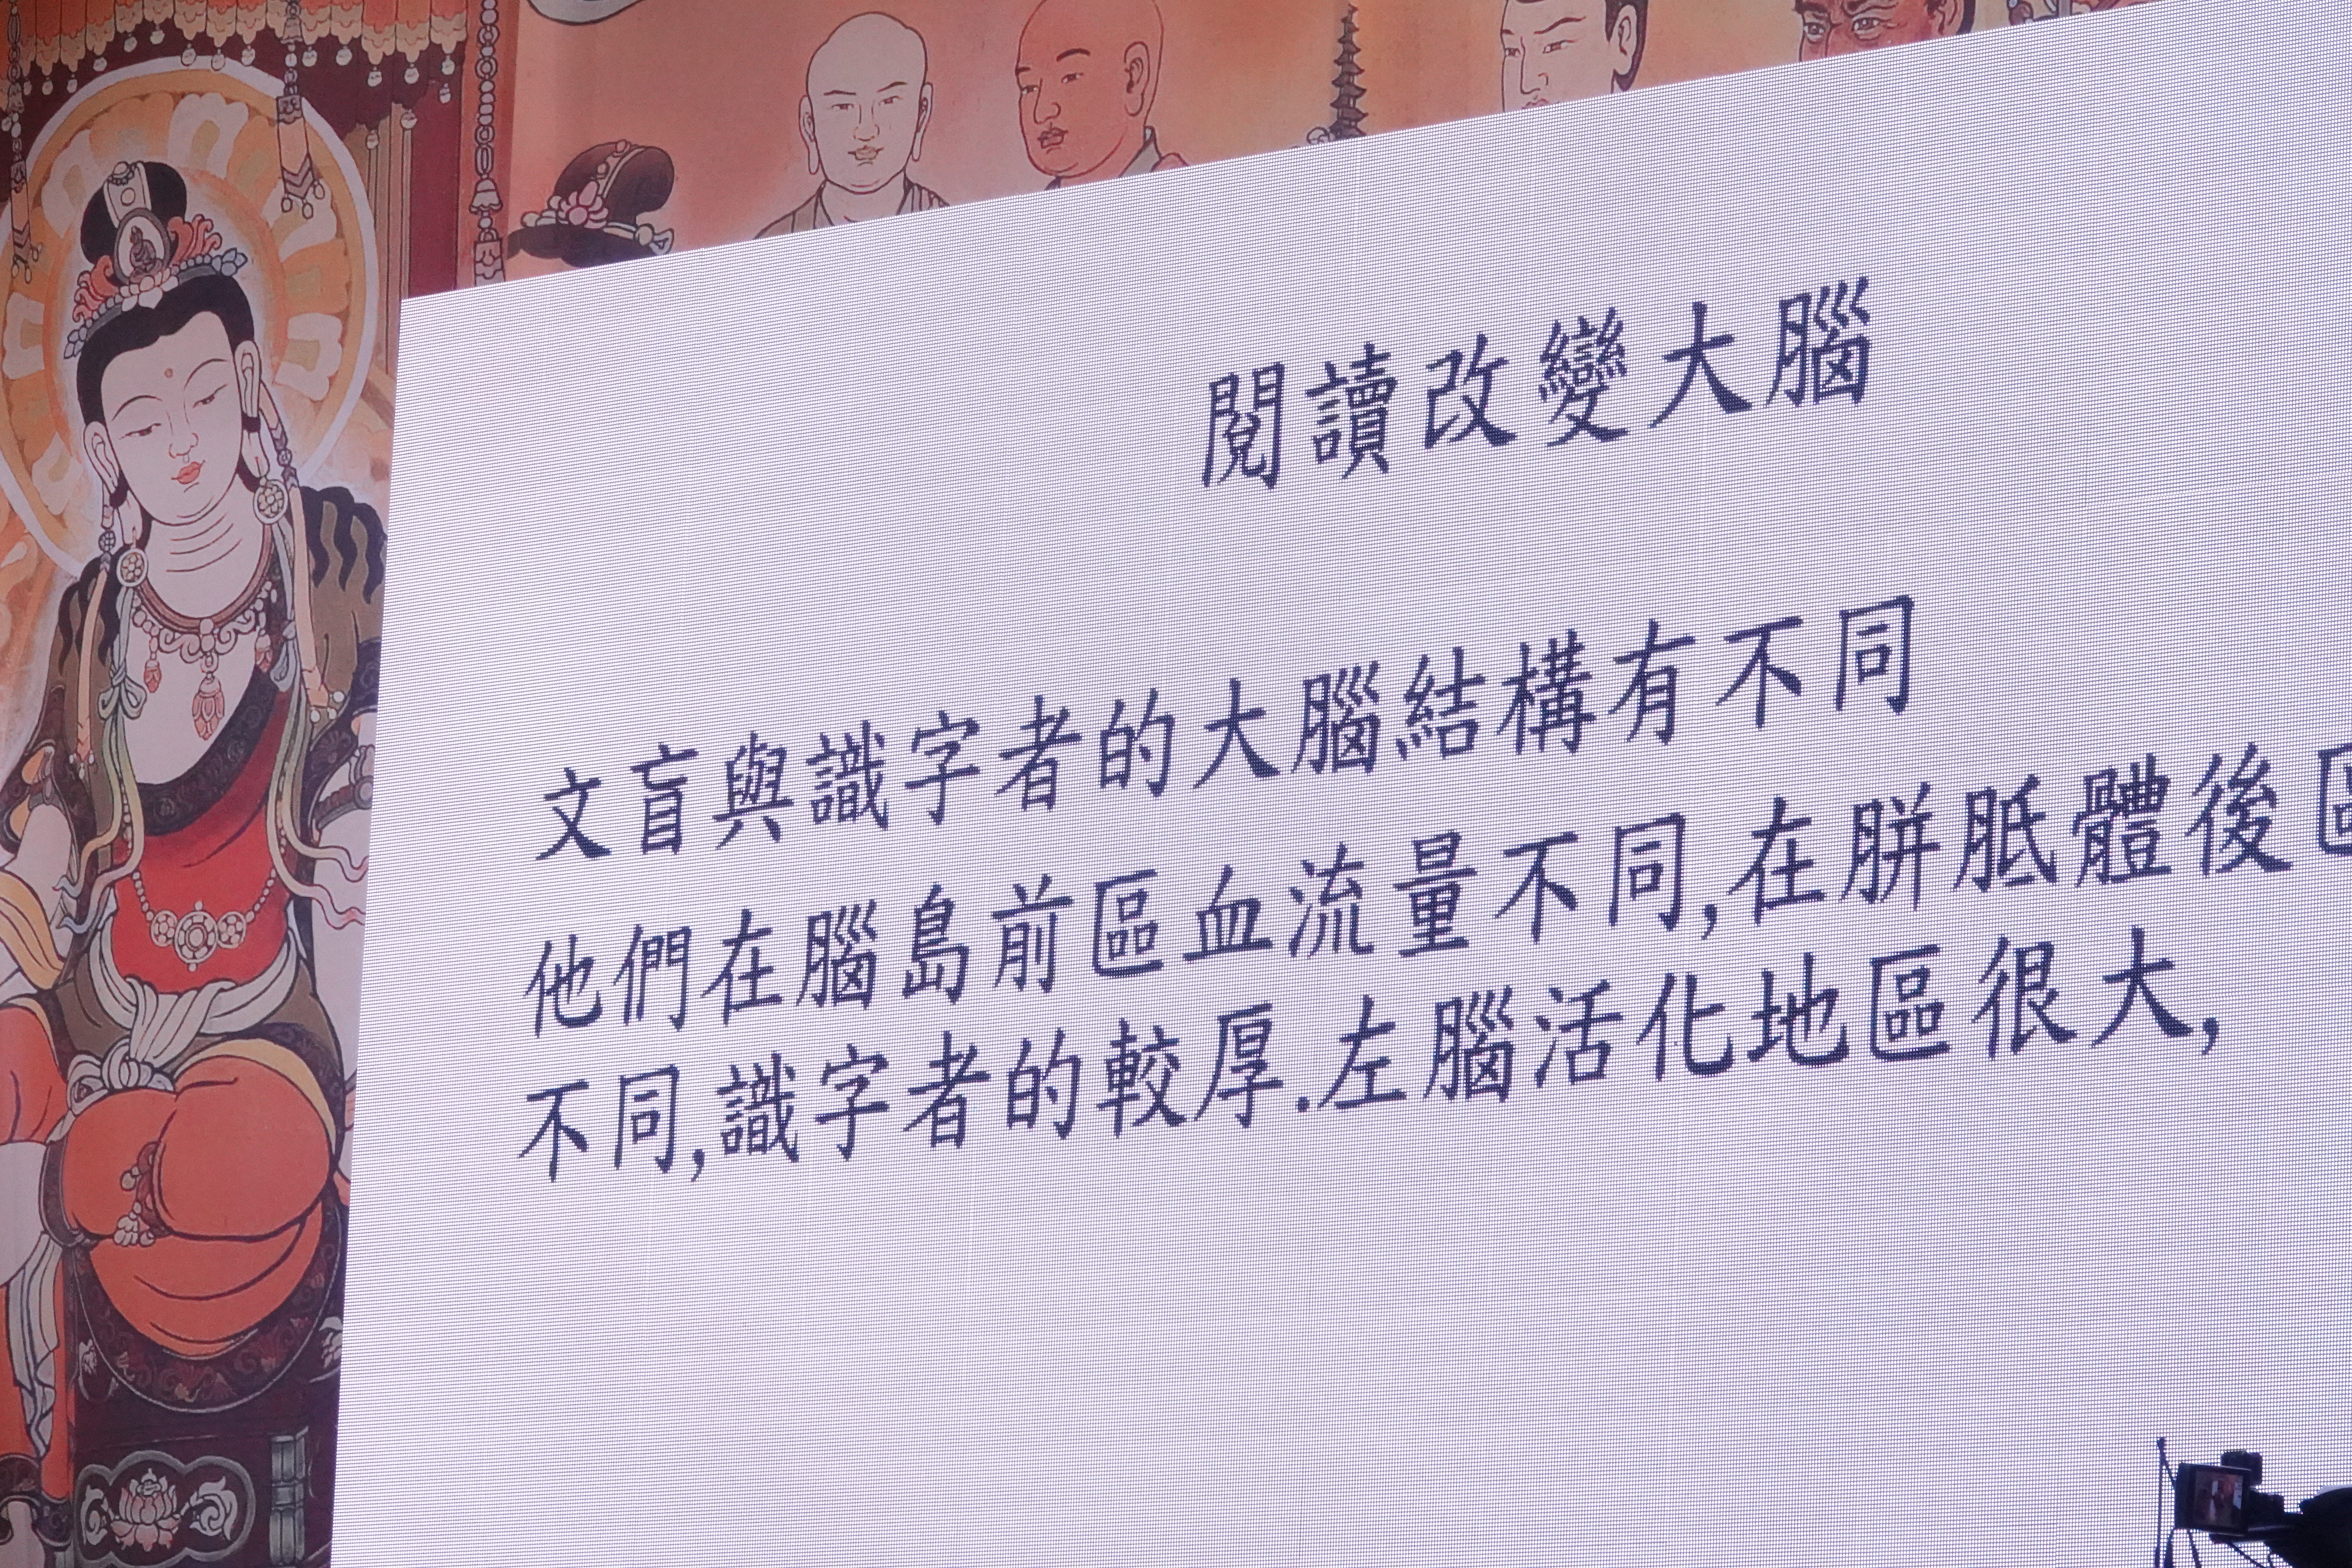 閱讀改變大腦
文盲與識字者的大腦結構有不同
他們在腦島前區血流量不同,在胼胝體後區
不同,識字者的較厚.左腦活化地區很大,